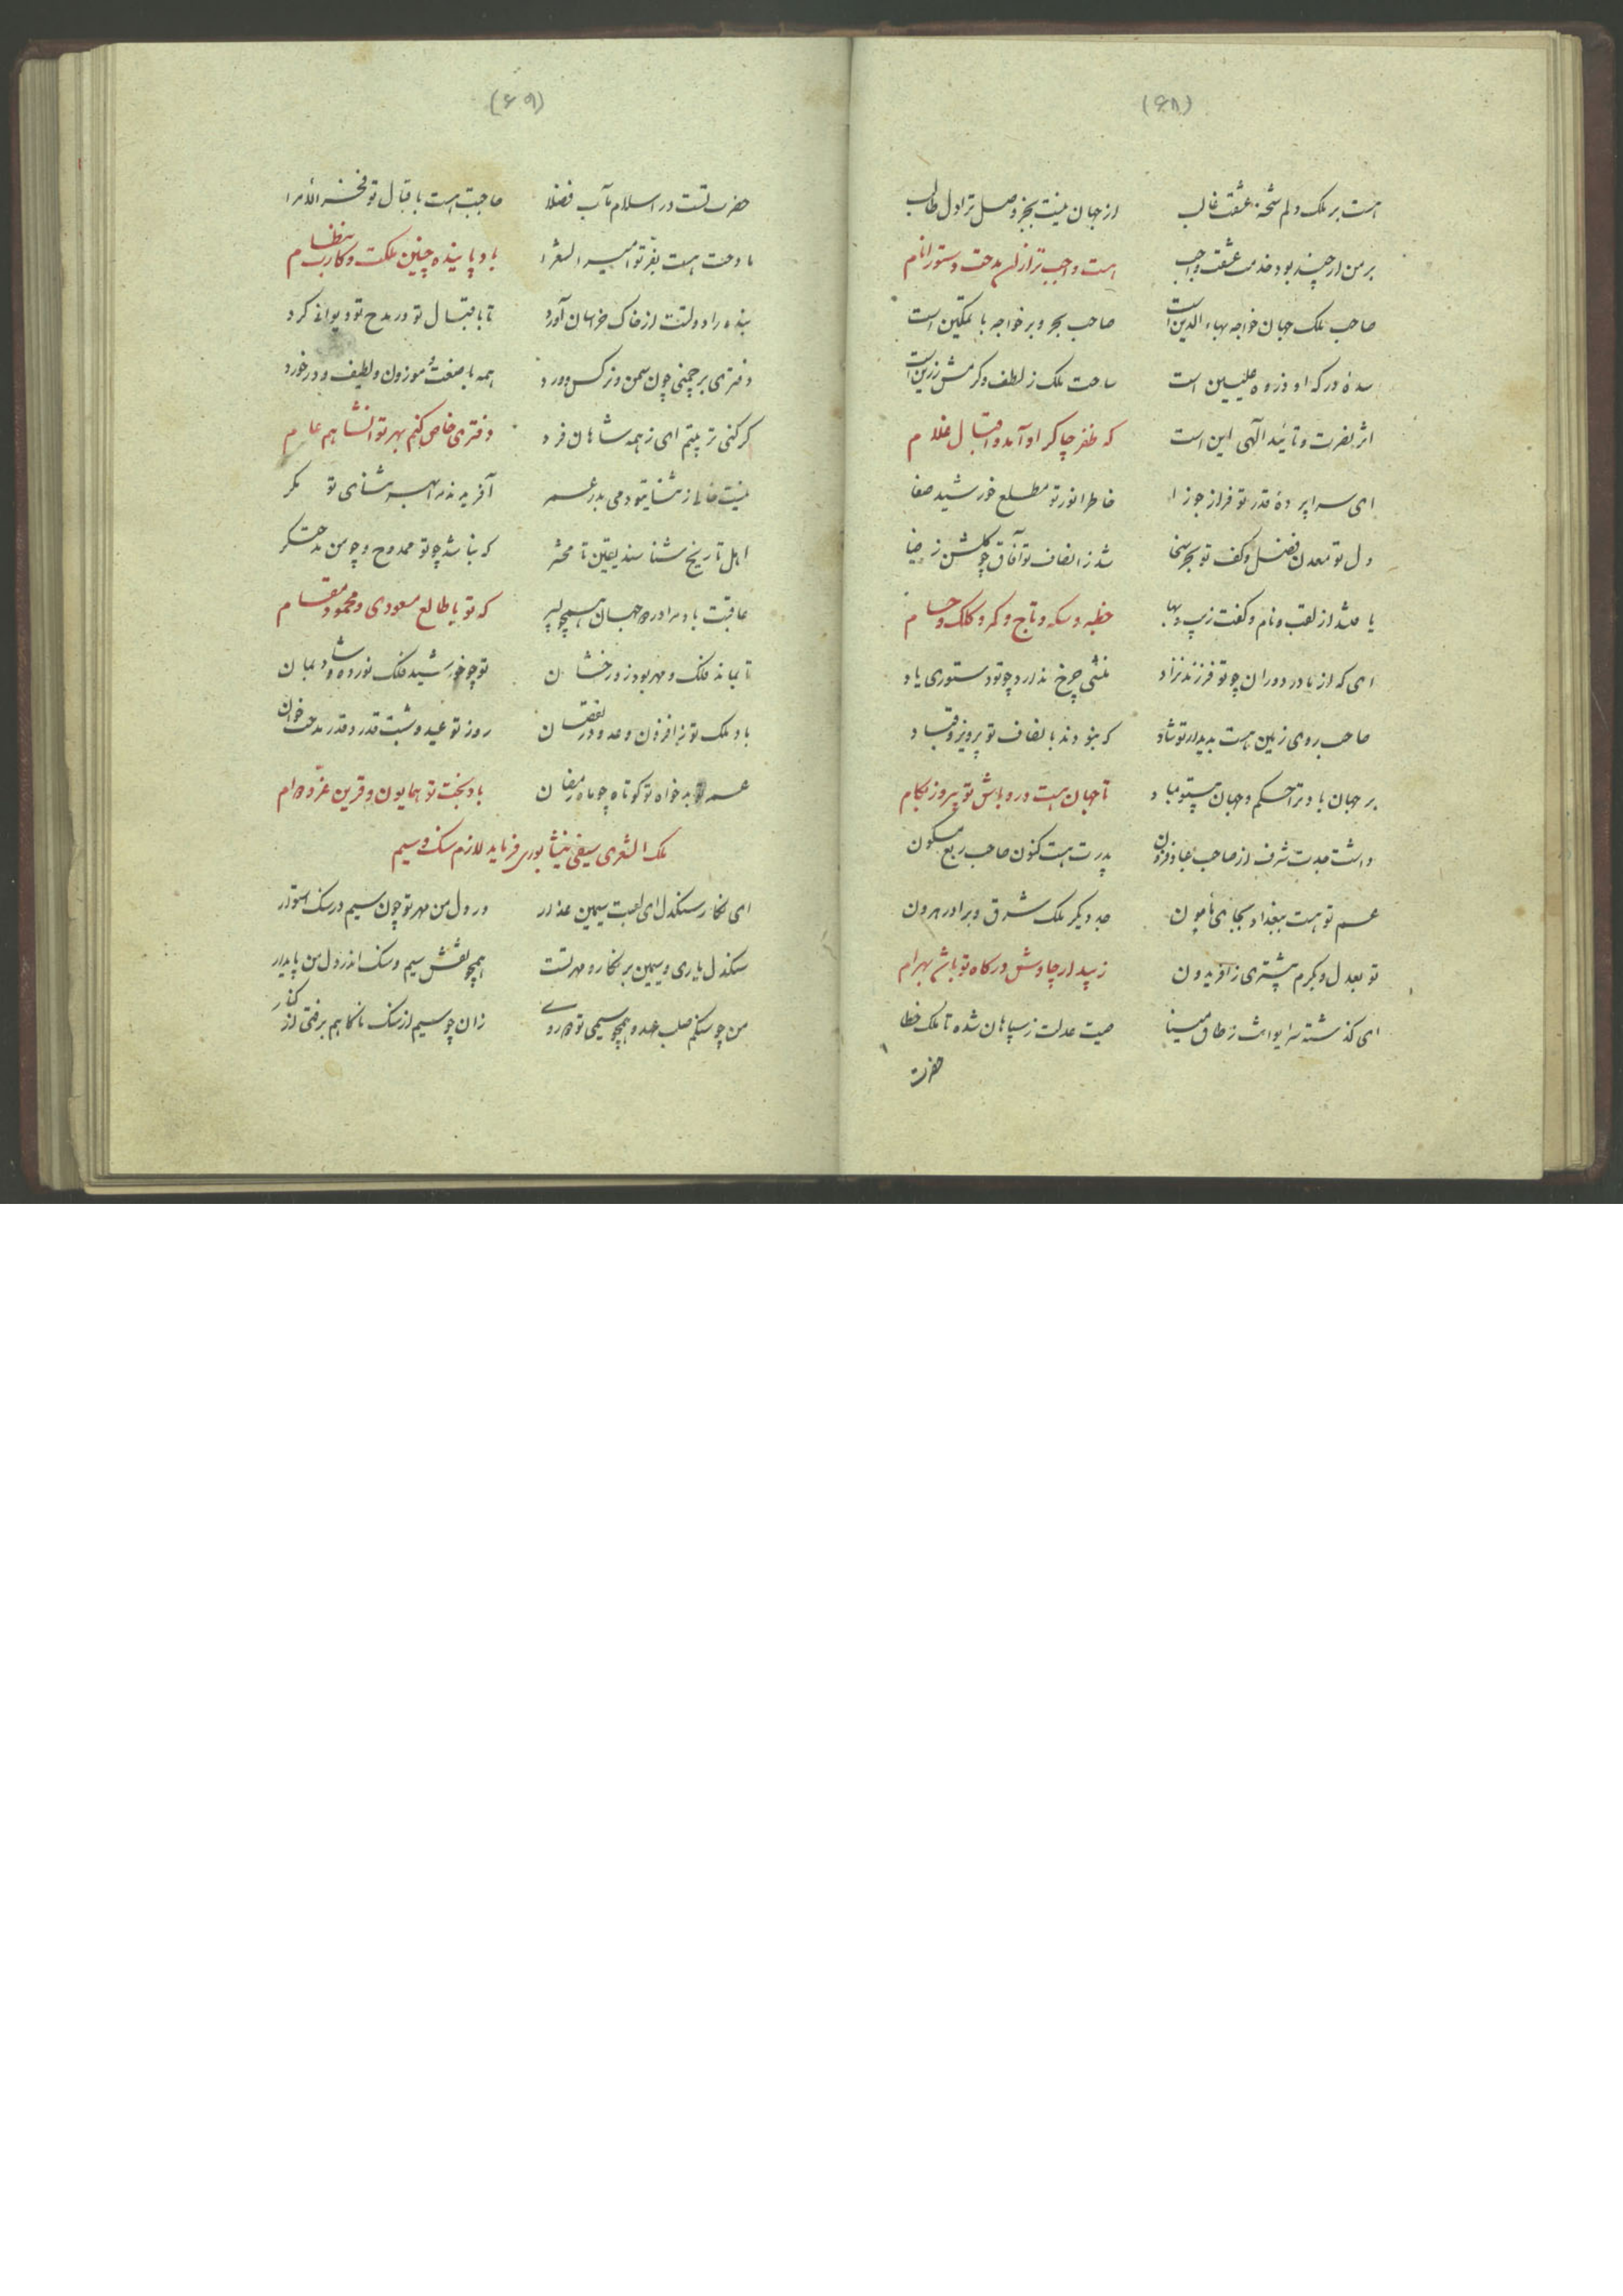 (۶۸)
هست بر ملک دلم شحنه عشقت غالب از جهان نیست بجز وصل ترا دل طالب
بر من ار چند بود خدمت عشقت واجب هست واجب‌تر ازان مدحت دستور انام
صاحب ملک جهان خواجه بهاء الدین است صاحب بحر و بر خواجه با تمکین است
سدهٔ درگه او ذروه علیین است ساحت ملک ز لطف و کرمش زرین است
اثر نصرت و تائید الهی این است که ظفر چاکر او آمد و اقبال غلام
ای سراپردهٔ قدر تو فراز جوزا خاطر انور تو مطلع خورشید صفا
دل تو معدن فضل و کف تو بحر سخا شد ز انصاف تو آفاق چو گلشن ز صبا
یافت از لقب و نام و کفت زیب و بها خطبه و سکه و تاج و کمر و کلک و حسام
ای که از مادر دوران چو تو فرزند نزاد منشی چرخ ندارد چو تو دستوری یاد
صاحب روی زمین هست بدیدار تو شاد که نبودند بانصاف تو پرویز و قباد
بر جهان باد ترا حکم و جهان بیتو مباد تا جهان هست درو باش تو پیروز بکام
داشت جدت شرف از صاحب عباد فزون پدرت هست کنون صاحب ربع مسکون
عم تو هست ببغداد بجای مأمون جد دیگر ملک شرق و برادر هرون
تو بعدل و بکرم بیشتری ز افریدون زیبد ار چاوش درگاه تو باشد بهرام
ای گذشته سر ایوانت ز طاق مینا صیت عدلت ز سپاهان شده تا ملک خطا
حضرت
(۶۹)
حضرت تست در اسلام مآب فضلا صاحبت هست باقبال تو فخر الأمرا
مادحت هست بفرّ تو امیر الشعرا باد پاینده چنین ملکت و کارت بنظام
بنده را دولتت از خاک خراسان آورد تا باقبال تو در مدح تو دیوانه کرد
دفتری بر چمنی چون سمن و نرگس و ورد همه با صنعت و موزون و لطیف و در خورد
گر کنی تربیتم ای ز همه شاهان فرد دفتری خاص کنم بهر تو انشا هم عام
نیست خالی ز ثنایت دمی بد عمر آفریدند مرا بهر ثنای تو مگر
اهل تاریخ شناسند یقین تا محشر که نباشد چو تو ممدوح و چو من مدحتگر
عاقبت باد مرا در جهان همچو پدر که تو با طالع مسعودی و محمود مقام
تا بماند فلک و مهر بود زو رخشان تو چو خورشید فلک نورده و شاد بمان
باد ملک تو در افزون و عدو در نقصان روز تو عید و شبت قدر و قدر مدحت خوان
عمر بدخواه تو کوتاه چو ماه رمضان باد بخت تو همایون و قرین عزّ دوام
ملک الشعرای سیفی نیشابوری فرماید لازم سنگ و سیم
ای نگار سنگدل ای لعبت سیمین عذار در دل من مهر تو چون سیم در سنگ استوار
سنگدل یاری و سیمین بر نگار و مهر تست همچو نقش سیم و سنگ اندر دل من پایدار
من چو سنگم صلب عهد و همچو سیمی تو دوروی زان چو سیم از سنگ ناگاهم برفتی از کنار